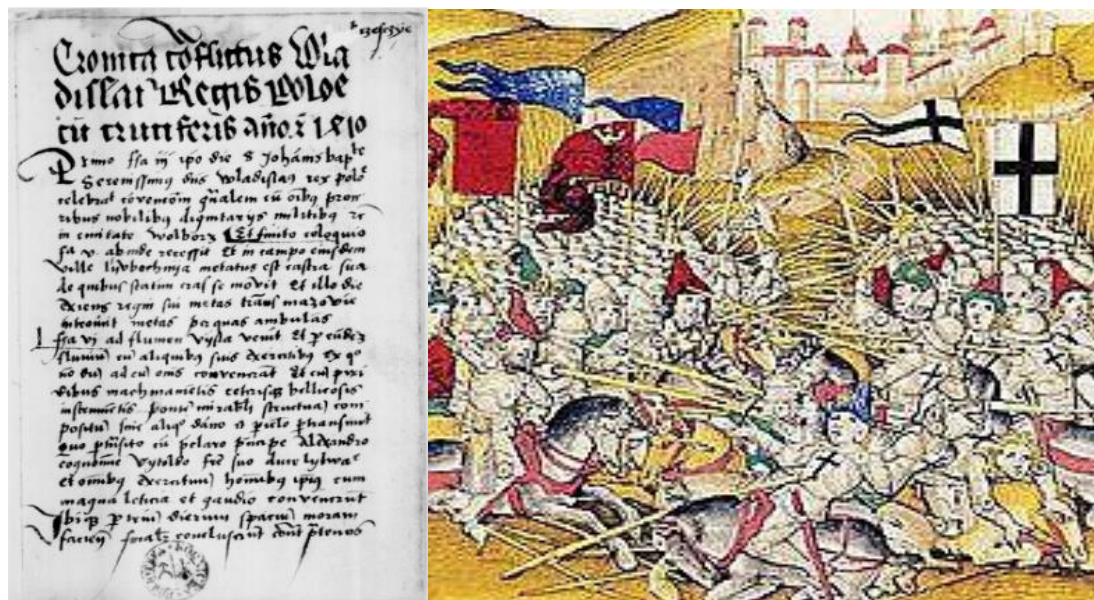 Cronica cõflictus Wla
dislai Regis Poloe
cũ cruciferis año 1410
Primo fẽa iii ipo die S Johãnis bapᵗᵉ
Serenissimꝰ dnus Wladislaꝰ rex poloᵉ
celebrat cõvencõm gñalem cũ oĩbꝰ proce
ribus nobilibꝰ dignitarys militibꝰ
in civitate Wolborz Et finito coloquio
fẽa v abinde recessit Et in campo eiusdem
ville lubochnya metatus est castra sua
de quibus statim cras se movit Et illo die
exiens regni sui metas trans mazovie
metas per quas ambulãs
fẽa vj ad flumen vysla venit Et ꝑ eũdem
fluvium cũ aliquibꝰ suis exercitibꝰ ex quo
nõ oms convenerãt Et cũ
machinamẽtis ceterisqꝫ bellicosis
instrumẽtis ponte mirabili structura com
positum sine aliqᵒ dãno periclo ꝑtransivit
quo ꝑtrãsito cũ prĩcipe Alexandro
cognomine Vytoldo frẽ suo duce lytwa
et omnibꝰ exercituũ hominibꝰ ipiꝰ cum
magna leticia et gaudio convenerũt
Ibiqꝫ ꝑ triũ dierum spaciũ moram
facien conclusẽrũt